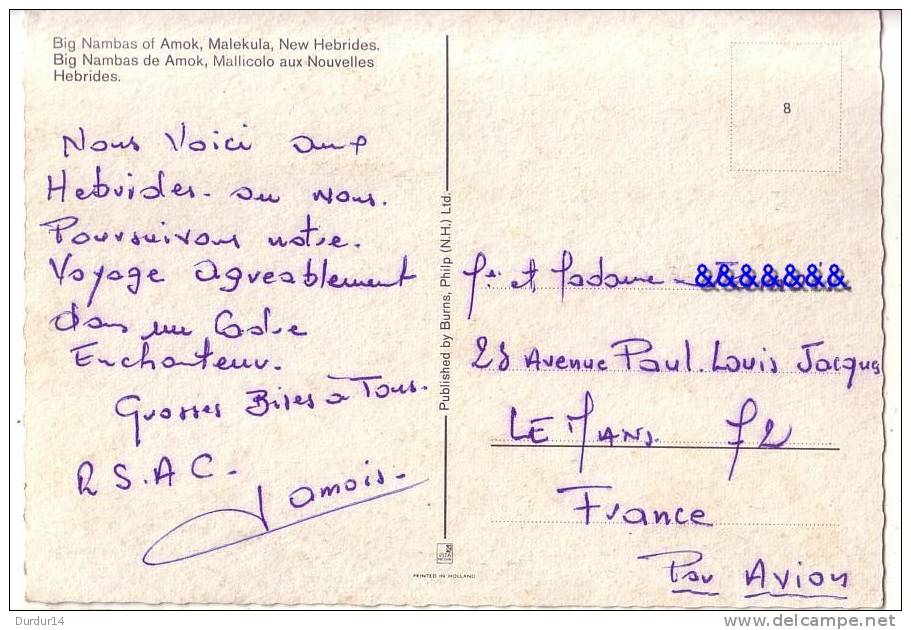 Big Nambas of Amok, Malekula, New Hebrides.
Big Nambas de Amok, Mallicolo aux Nouvelles
Hebrides.
Nous Voici aux
Hebrides. ou nous.
Poursuivons notre.
Voyage agreablement
dans un Cadre
Enchanteur.
Grosses Bises à Tous.
R S.A C.
Published by Burns, Philp (N.H.) Ltd.
PRINTED IN HOLLAND
8
et Madame &&&&&&&
28 Avenue Paul. Louis Jacques
LE MANS. 72
France
Par Avion
Durdur14
www.delcampe.net